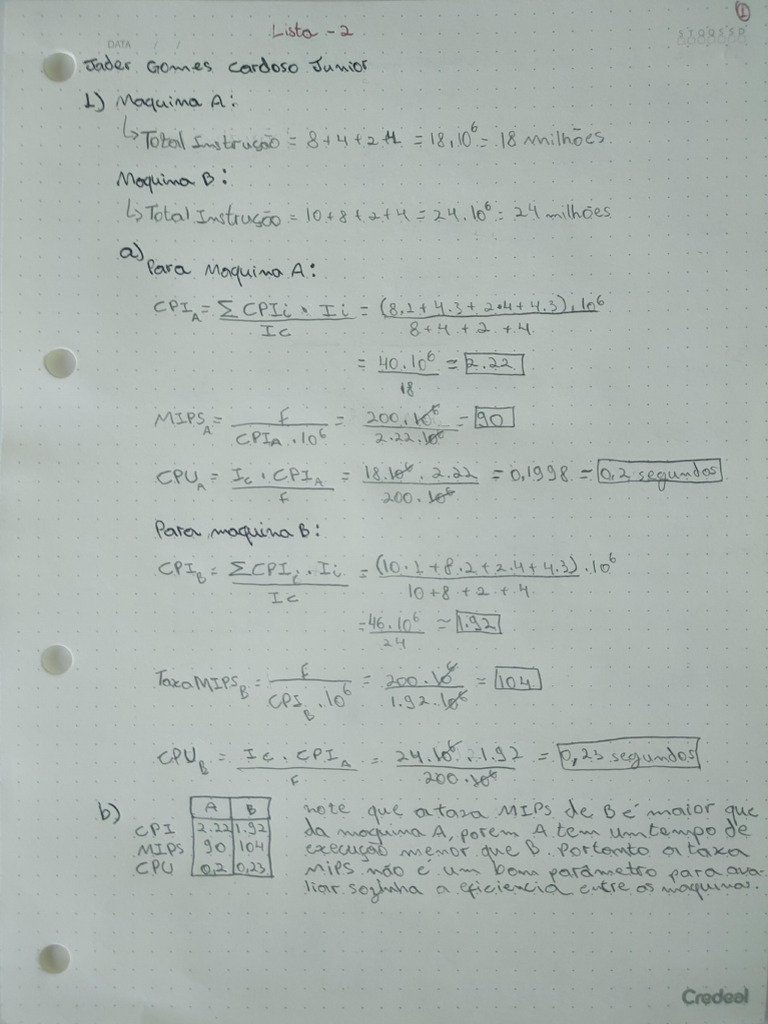 1
Lista - 2
DATA / /
S T Q Q S S D
Jader Gomes Cardoso Junior
1) Maquina A:
↳ Total Instrução = 8+4+2+4 = 18.10⁶ = 18 milhões
Maquina B:
↳ Total Instrução = 10+8+2+4 = 24.10⁶ = 24 milhões
a) Para Maquina A:
CPI_A = ΣCPIi . Ii / Ic = (8.1+4.3+2.4+4.3).10⁶ / 8+4+2+4
= 40.10⁶ / 18 ≈ 2.22
MIPS_A = f / CPI_A . 10⁶ = 200.10⁶ / 2.22.10⁶ = 90
CPU_A = Ic . CPI_A / f = 18.10⁶ . 2.22 / 200.10⁶ = 0,1998 = 0,2 segundos
Para maquina B:
CPI_B = ΣCPIi . Ii / Ic = (10.1+8.2+2.4+4.3).10⁶ / 10+8+2+4
= 46.10⁶ / 24 ≈ 1.92
Taxa MIPS_B = f / CPI_B . 10⁶ = 200.10⁶ / 1.92.10⁶ = 104
CPU_B = Ic . CPI_A / f = 24.10⁶ . 1.92 / 200.10⁶ = 0,23 segundos
b) A B
CPI 2.22 1.92
MIPS 90 104
CPU 0,2 0,23
note que a taxa MIPs de B é maior que
da maquina A, porem A tem um tempo de
execução menor que B. Portanto a taxa
mips não é um bom parâmetro para ava-
liar sozinha a eficiencia entre as maquinas.
Credeal